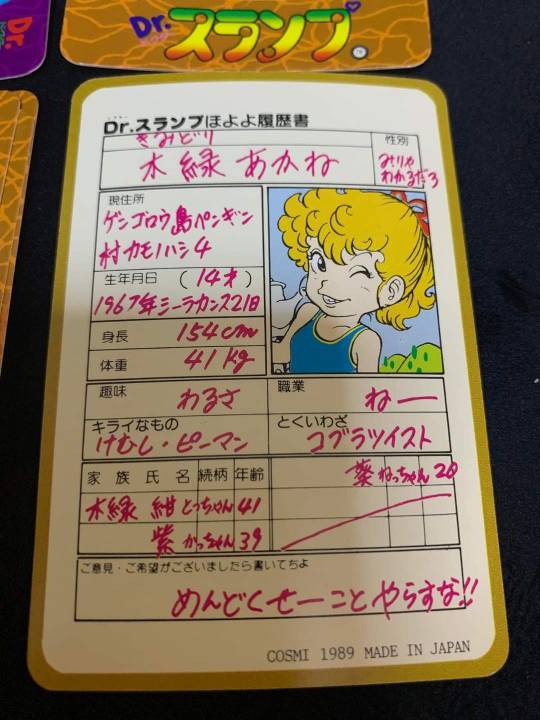 Dr.
スランプ
Dr.
Dr.スランプほよよ履歴書
きみどり
木緑 あかね
性別
みりゃ
わかるだろ
現住所
ゲンゴロウ島ペンギン
村カモノハシ4
生年月日 (14才)
1967年シーラカンス21日
身長 154cm
体重 41kg
趣味 わるさ
職業 ねー
キライなもの
けむし・ピーマン
とくいわざ
コブラツイスト
家族氏名 続柄 年齢
木緑 紺 とっちゃん 41
紫 かっちゃん 39
葵 ねっちゃん 20
ご意見・ご希望がございましたら書いてちょ
めんどくせーことやらすな!!
COSMI 1989 MADE IN JAPAN